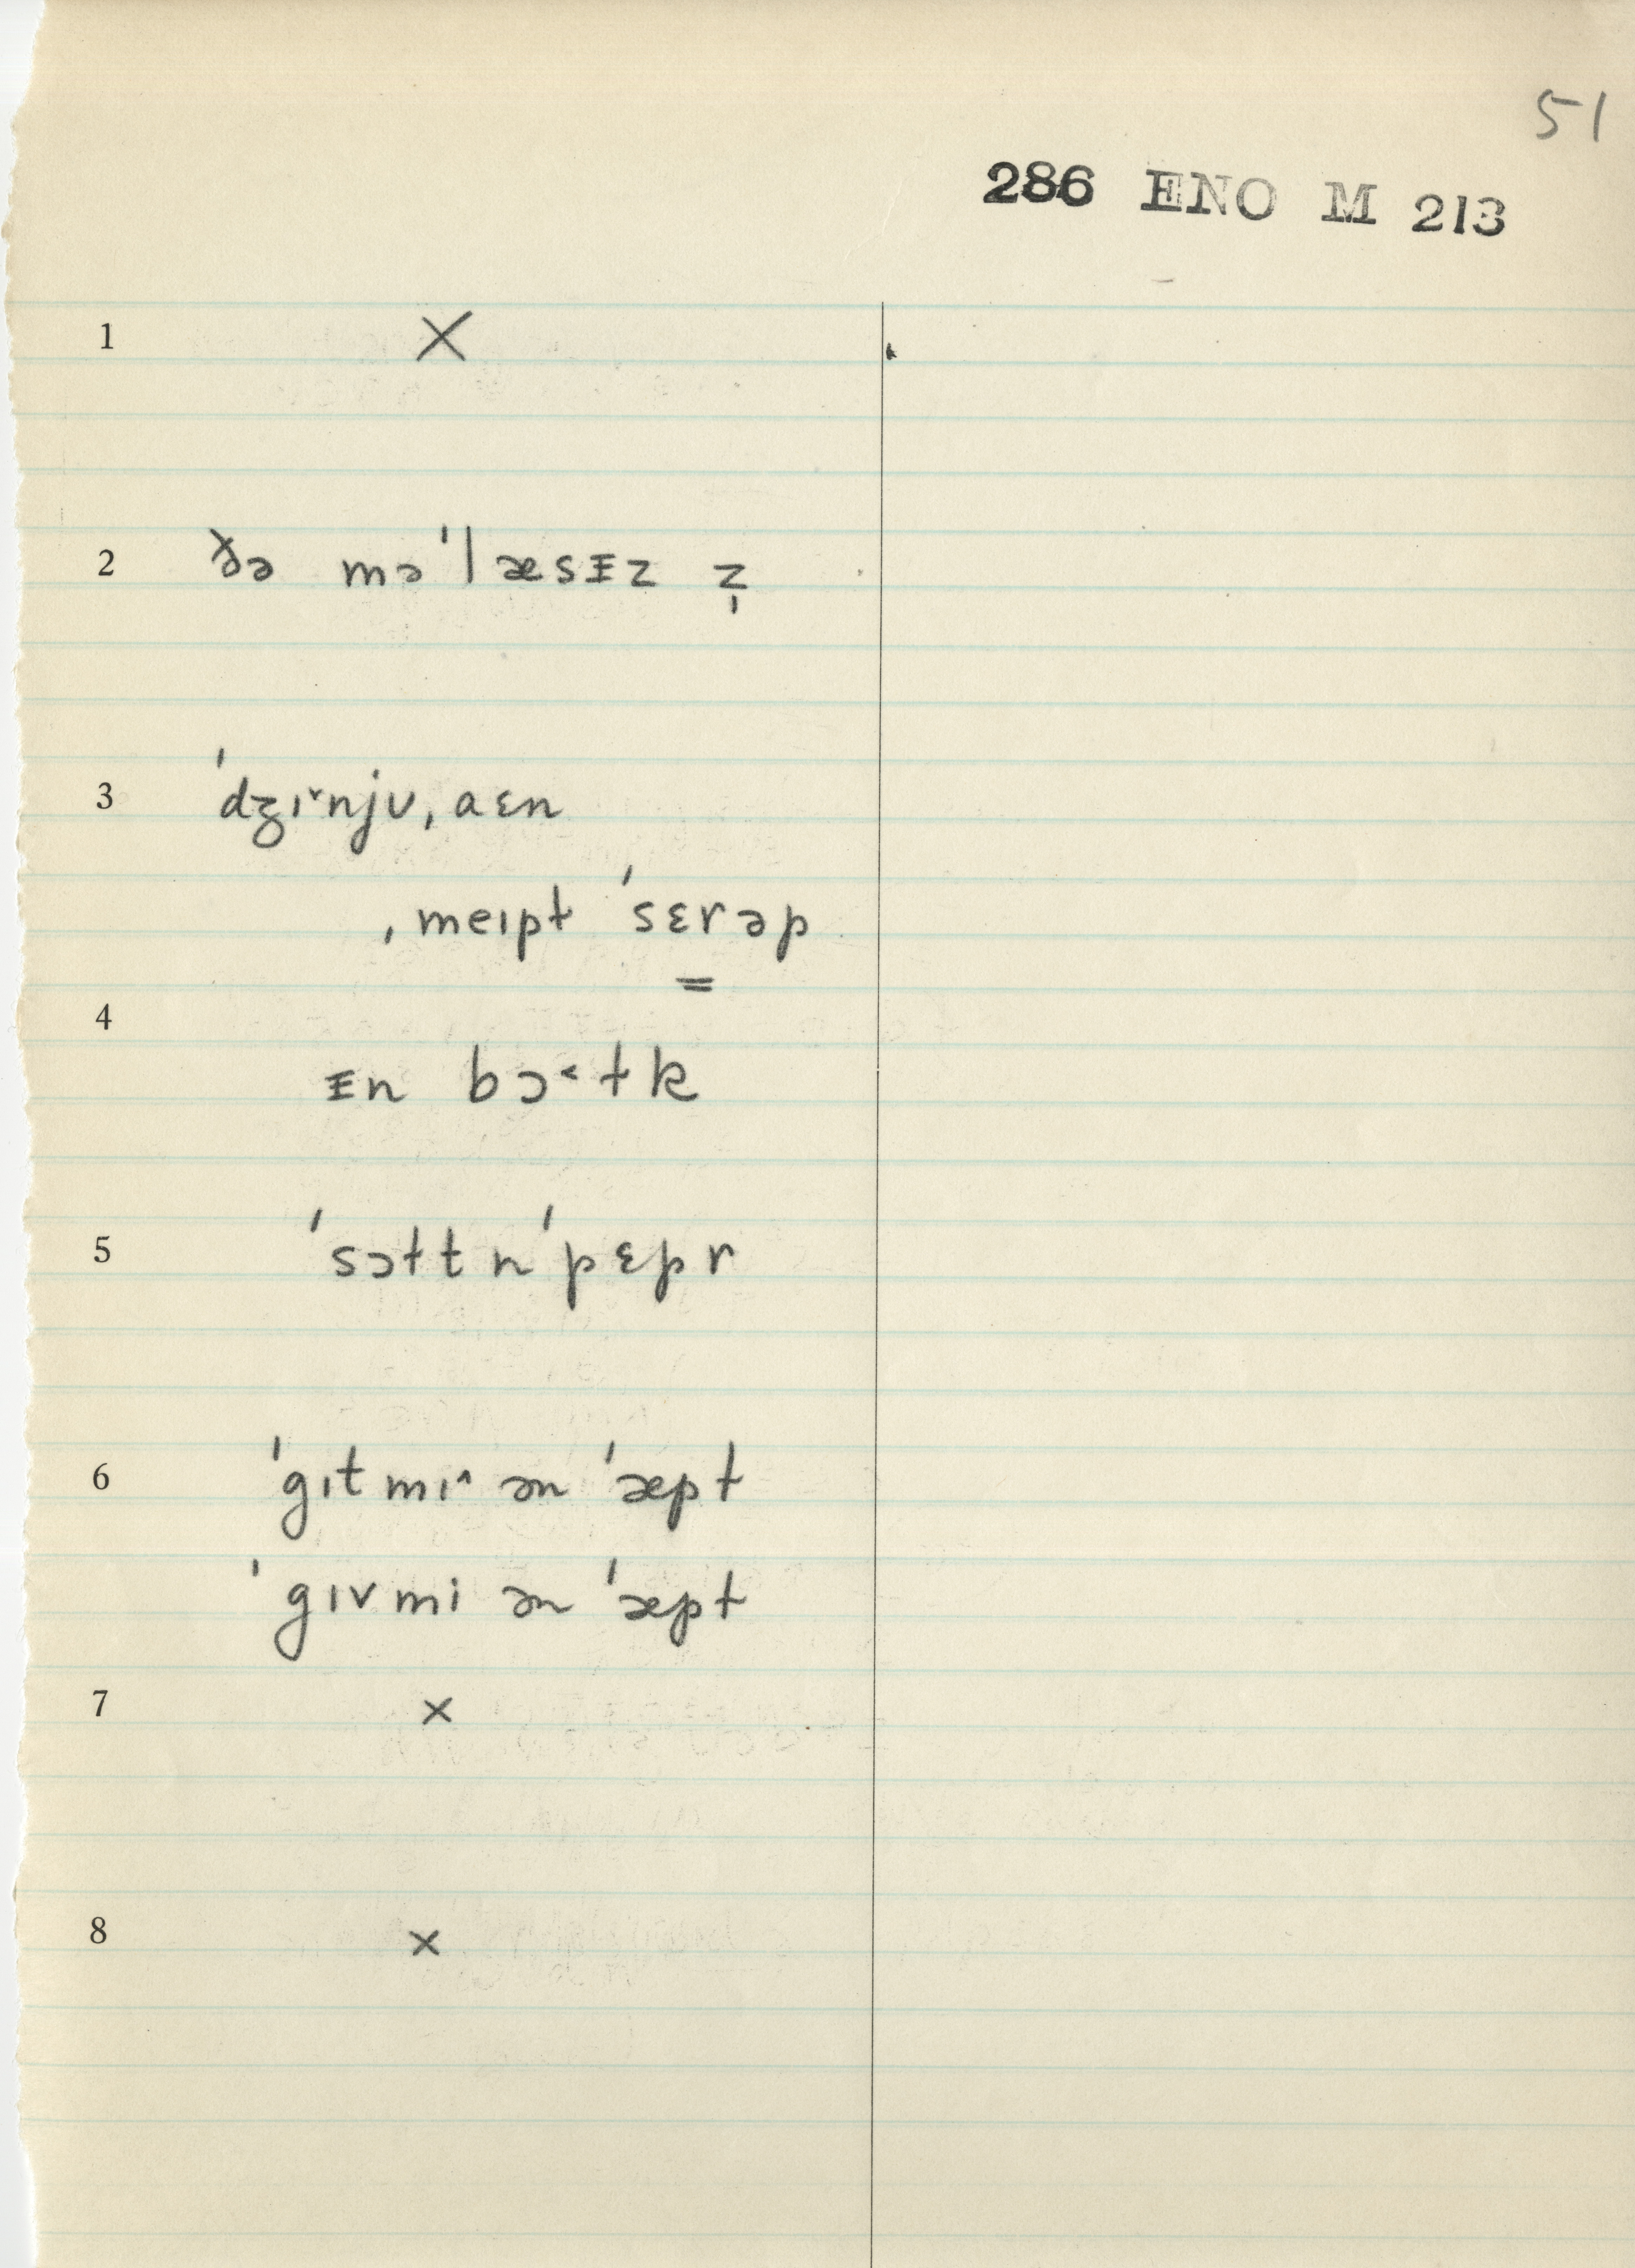 51
286 ENO M 213
1 X
2 ðə mə'læsᵻz z̩
3 'dʒɪ˅nju, aɛn
ˌmeɪpt 'sɛrəp
=
4
ᵻn bɔ˂tk
5 'sɔtt n 'pɛpr
6 'gɪt mɪ^ ən 'æpt
'gɪv mi ən 'æpt
7 x
8 x